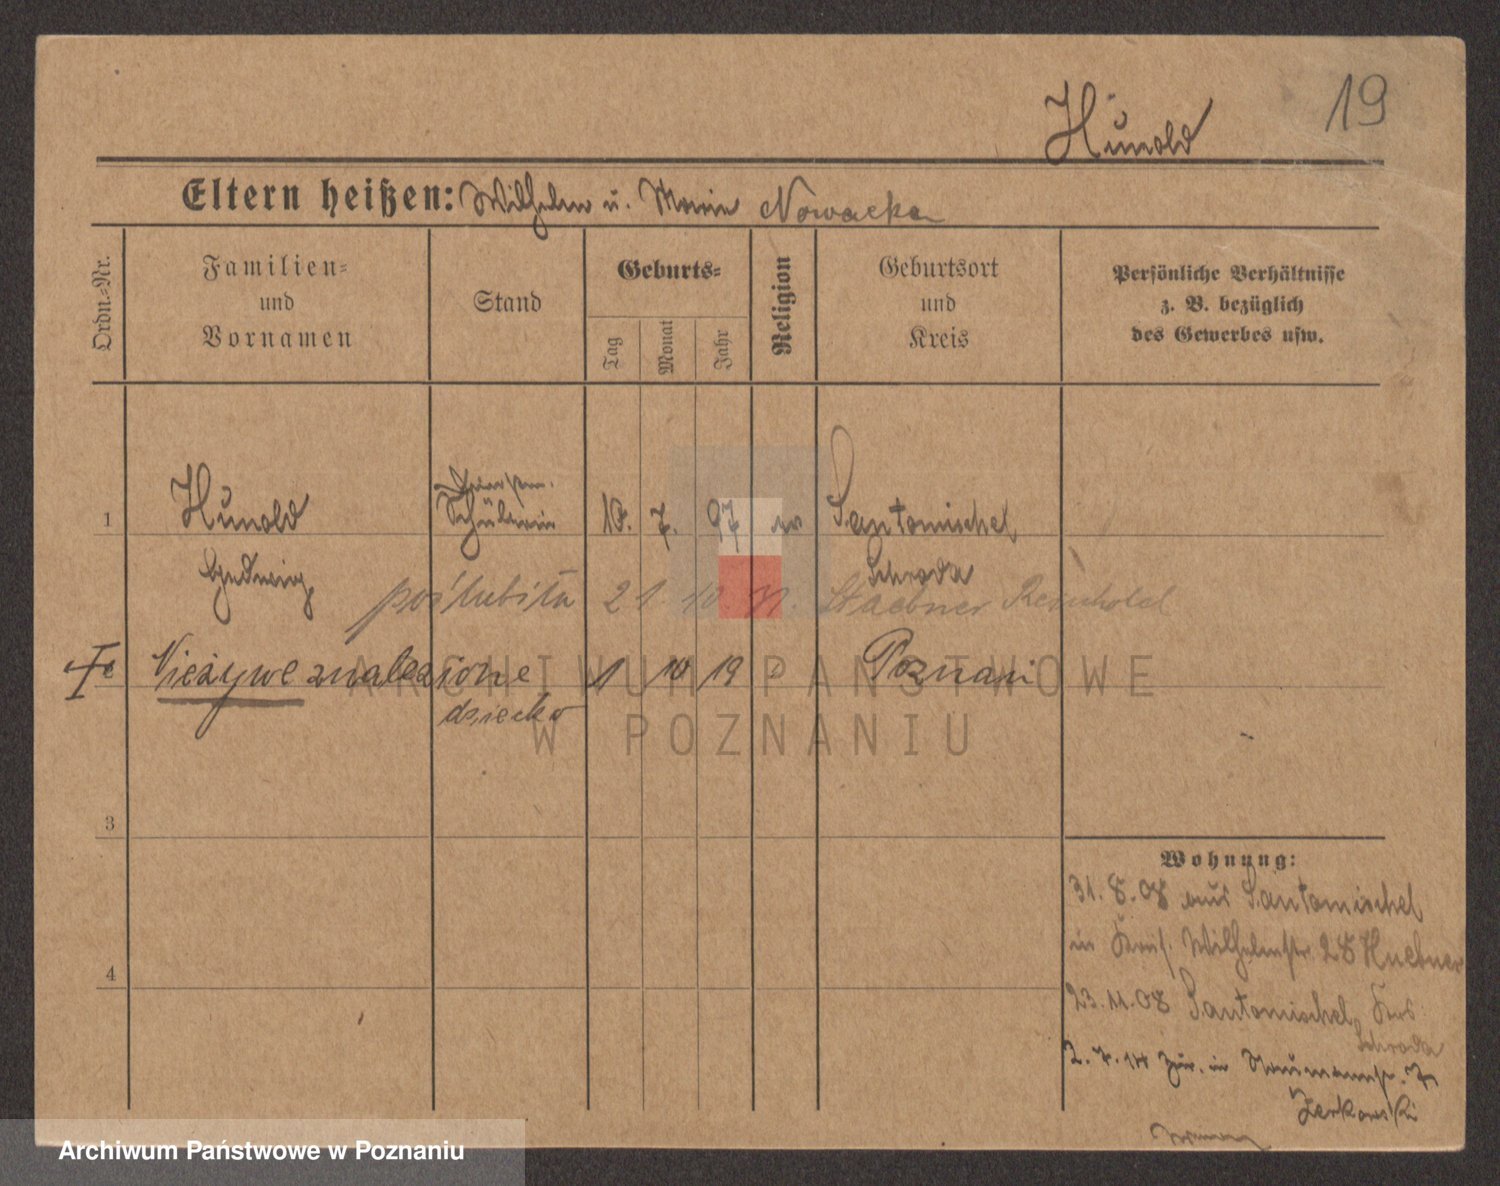 19
Hunold
Eltern heißen: Wilhelm u. Marie Nowacka
Ordn.-Nr.
Familien-
und
Vornamen
Stand
Geburts-
Tag
Monat
Jahr
Religion
Geburtsort
und
Kreis
Persönliche Verhältnisse
z. B. bezüglich
des Gewerbes usw.
1 Hunold Schülerin 7. 97 Santomischel
Hedwig Schroda
poślubiła 21. 10. Staebner Reinhold
Nieżywe znalezione 1 10 19 Poznań
dziecko
3
4
Wohnung:
31. 8. 08 aus Santomischel
in Wilhelmstr. 28 Huebner
23. 11. 08 Santomischel, Krs.
Schroda
2. 7. zur. in Naumannstr. 7
Zerkowski
ARCHIWUM PAŃSTWOWE
W POZNANIU
Archiwum Państwowe w Poznaniu